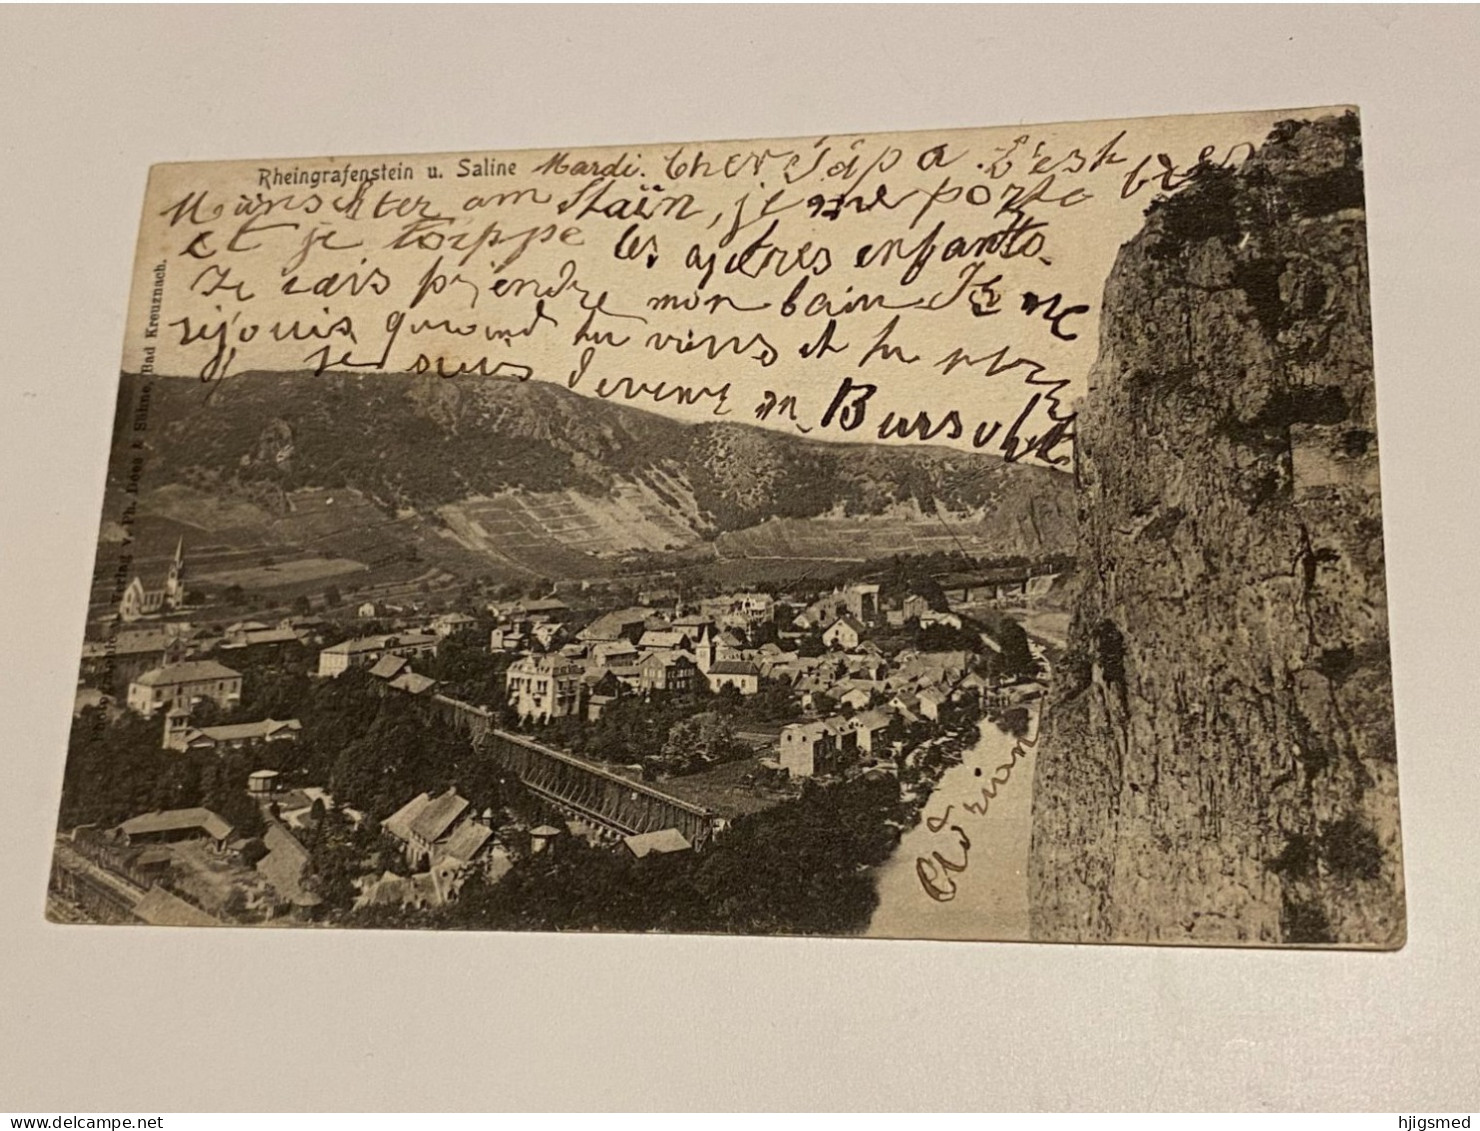 Rheingrafenstein u. Saline Mardi. Cher Papa. C'est
Münschter am Staïn, je me porte bien
et je frippe les aytres enfants.
Je vais prjendre mon bain Je me
réjouis quand tu viens et tu
je suis devenu un Bursch
Adrian
Verlag v. Ph. Dees & Söhne, Bad Kreuznach.
hjigsmed